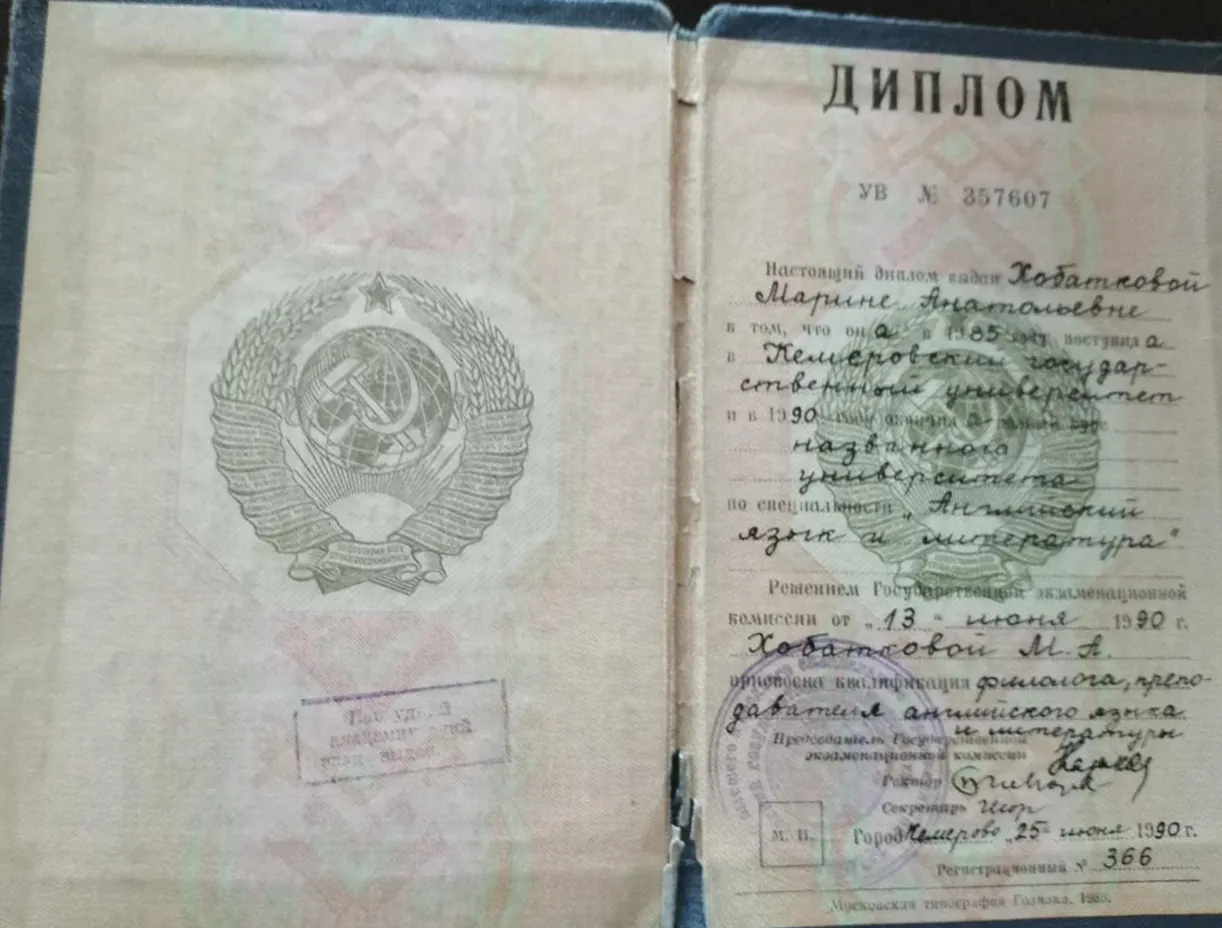 ДИПЛОМ
УВ № 357607
Настоящий диплом выдан Хобатковой
Марине Анатольевне
в том, что он а в 1985 году поступил а
в Кемеровский государ-
ственный университет
и в 1990 году окончил а полный курс
названного
университета
по специальности „Английский
язык и литература"
Решением Государственной экзаменационной
комиссии от „13" июня 1990 г.
Хобатковой М. А.
присвоена квалификация филолога, препо-
давателя английского языка
и литературы
Председатель Государственной
экзаменационной комиссии
Ректор
Секретарь
М. П.
Город Кемерово „25" июня 1990 г.
Регистрационный № 366
Московская типография Гознака.